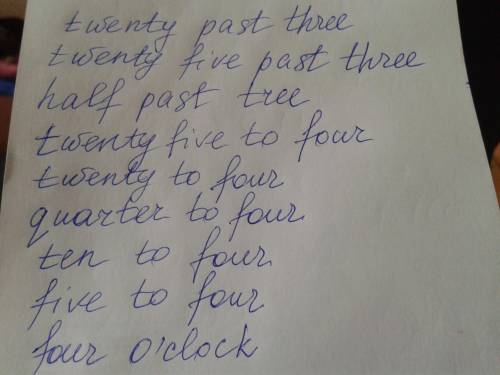 twenty past three
twenty five past three
half past tree
twenty five to four
twenty to four
quarter to four
ten to four
five to four
four o'clock